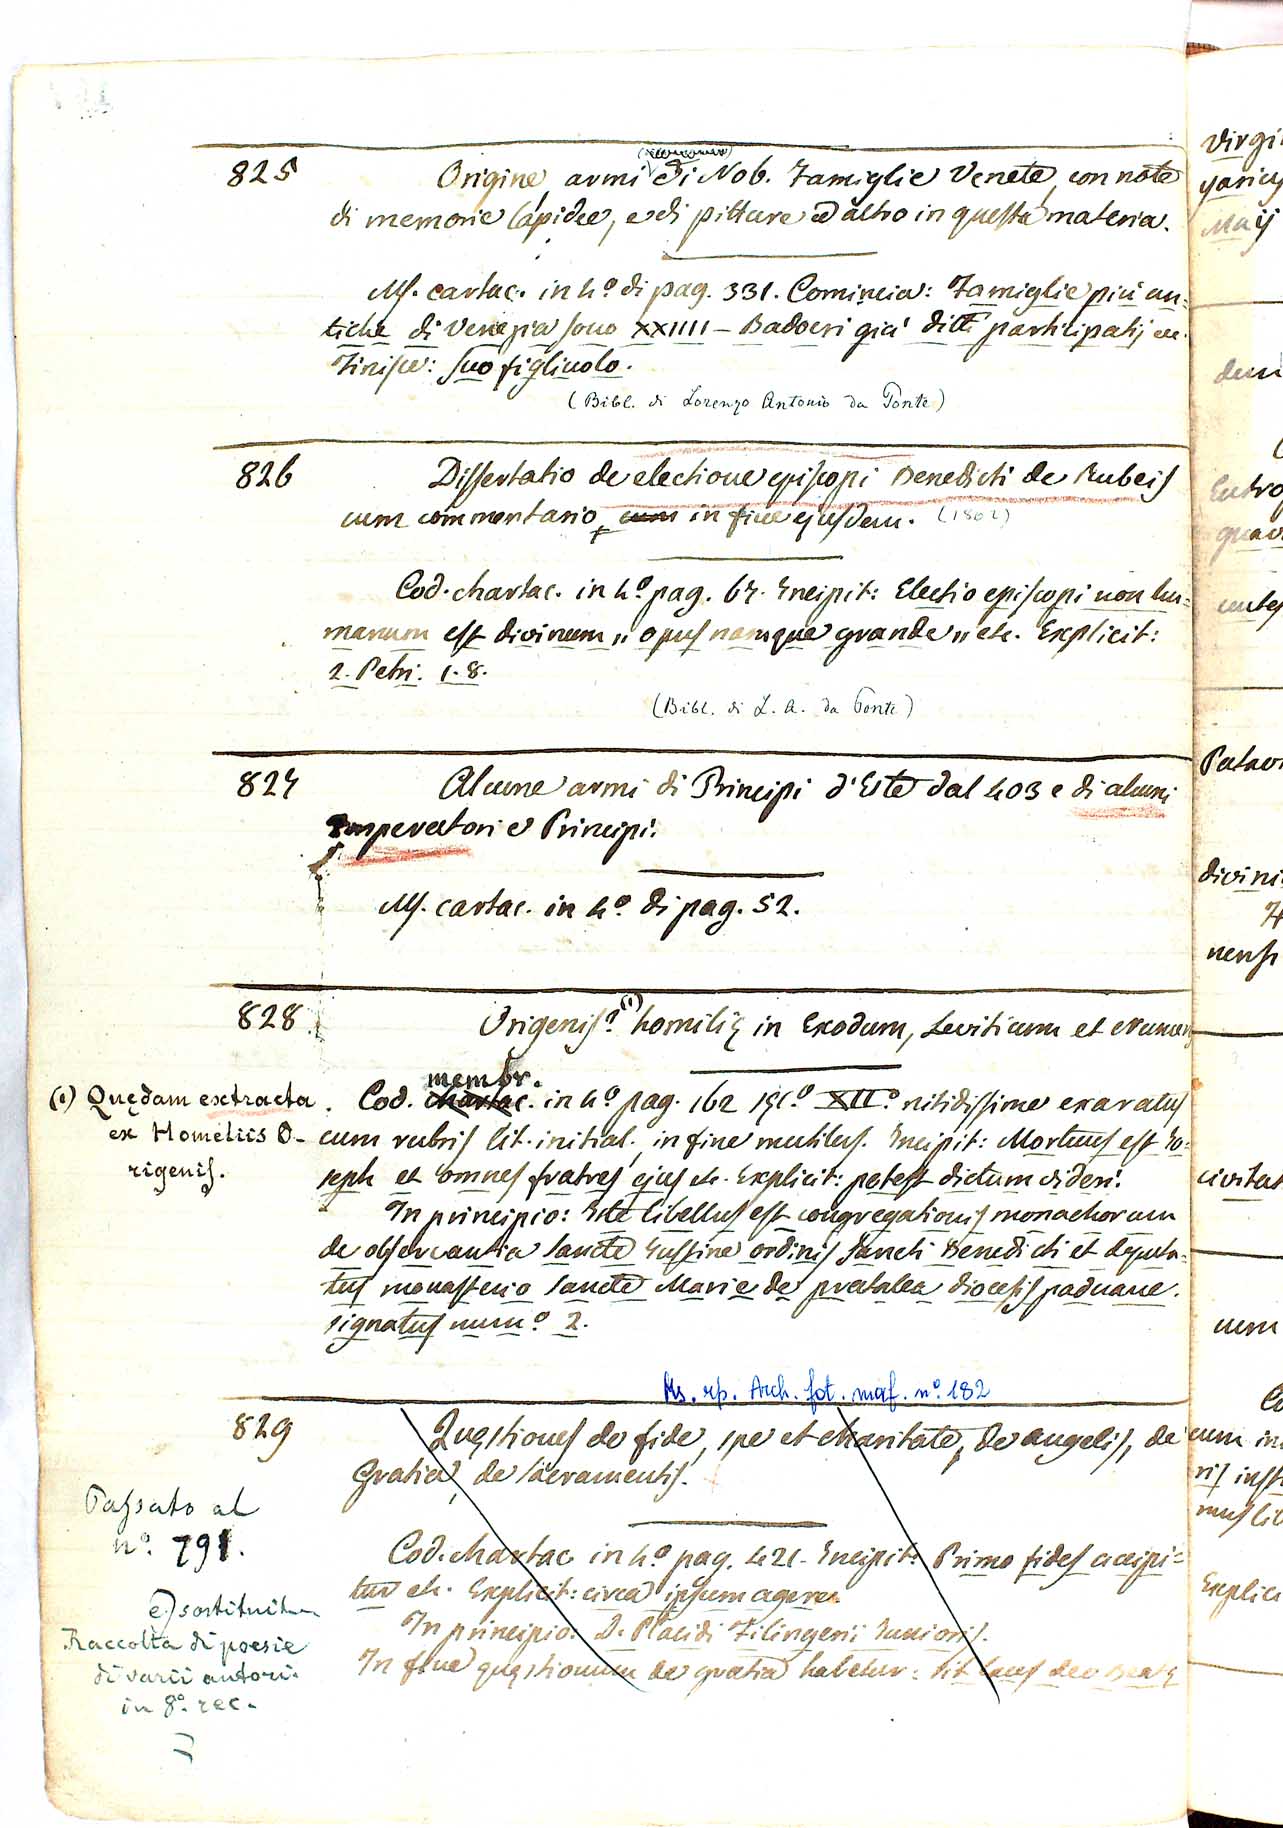 825
Origine, armi di Nob. Famiglie Venete, con note
di memorie lapidee, e di pitture ed altro in questa materia.
Ms. cartac. in 4º di pag. 331. Comincia: Famiglie più an-
tiche di Venezia sono XXIIII – Badoeri già ditti participatij ec.
Finisce: suo figliuolo.
(Bibl. di Lorenzo Antonio da Ponte)
826
Dissertatio de electione episcopi Benedicti de Rubeis
cum commentario, cum in fine ejusdem. (1802)
Cod. chartac. in 4º pag. 67. Incipit: Electio episcopi non hu-
manum est divinum „ opus namque grande „ etc. Explicit:
2. Petri. 1. 8.
(Bibl. di L. A. da Ponte)
827
Alcune armi di Principi d'Este dal 403 e di alcuni
Imperatori e Principi.
Ms. cartac. in 4º. di pag. 52.
828
Origenis? (1) homilię in Exodum, Leviticum et Numeros
membr.
(1) Quędam extracta
ex Homeliis O-
rigenis.
Cod. chartac. in 4º pag. 162 sęc.º XIIº nitidissime exaratus
cum rubris lit. initial., in fine mutilus. Incipit: Mortuus est Jo-
seph et omnes fratres ejus etc. Explicit: potest dictum videri.
In principio: Iste libellus est congregationis monachorum
de observantia sancte Iustine ordinis sancti Benedicti et deputa-
tus monasterio sancte Marie de pratalea diocesis paduane.
signatus num.º 2.
Ms. rip. Arch. fot. marf. nº. 182
829
Quęstiones de fide, spe et charitate, de angelis, de
Gratia, de sacramentis.
Passato al
nº. 791.
e) sostituit
Raccolta di poesie
di varii autori.
in 8º. rec.
Cod. chartac. in 4º pag. 421. Incipit: Primo fides accipi-
tur etc. Explicit: circa ipsum agere.
In principio: D. Placidi Filingerii Iunioris.
In fine quęstionum de gratia habetur: sit laus deo Beatę